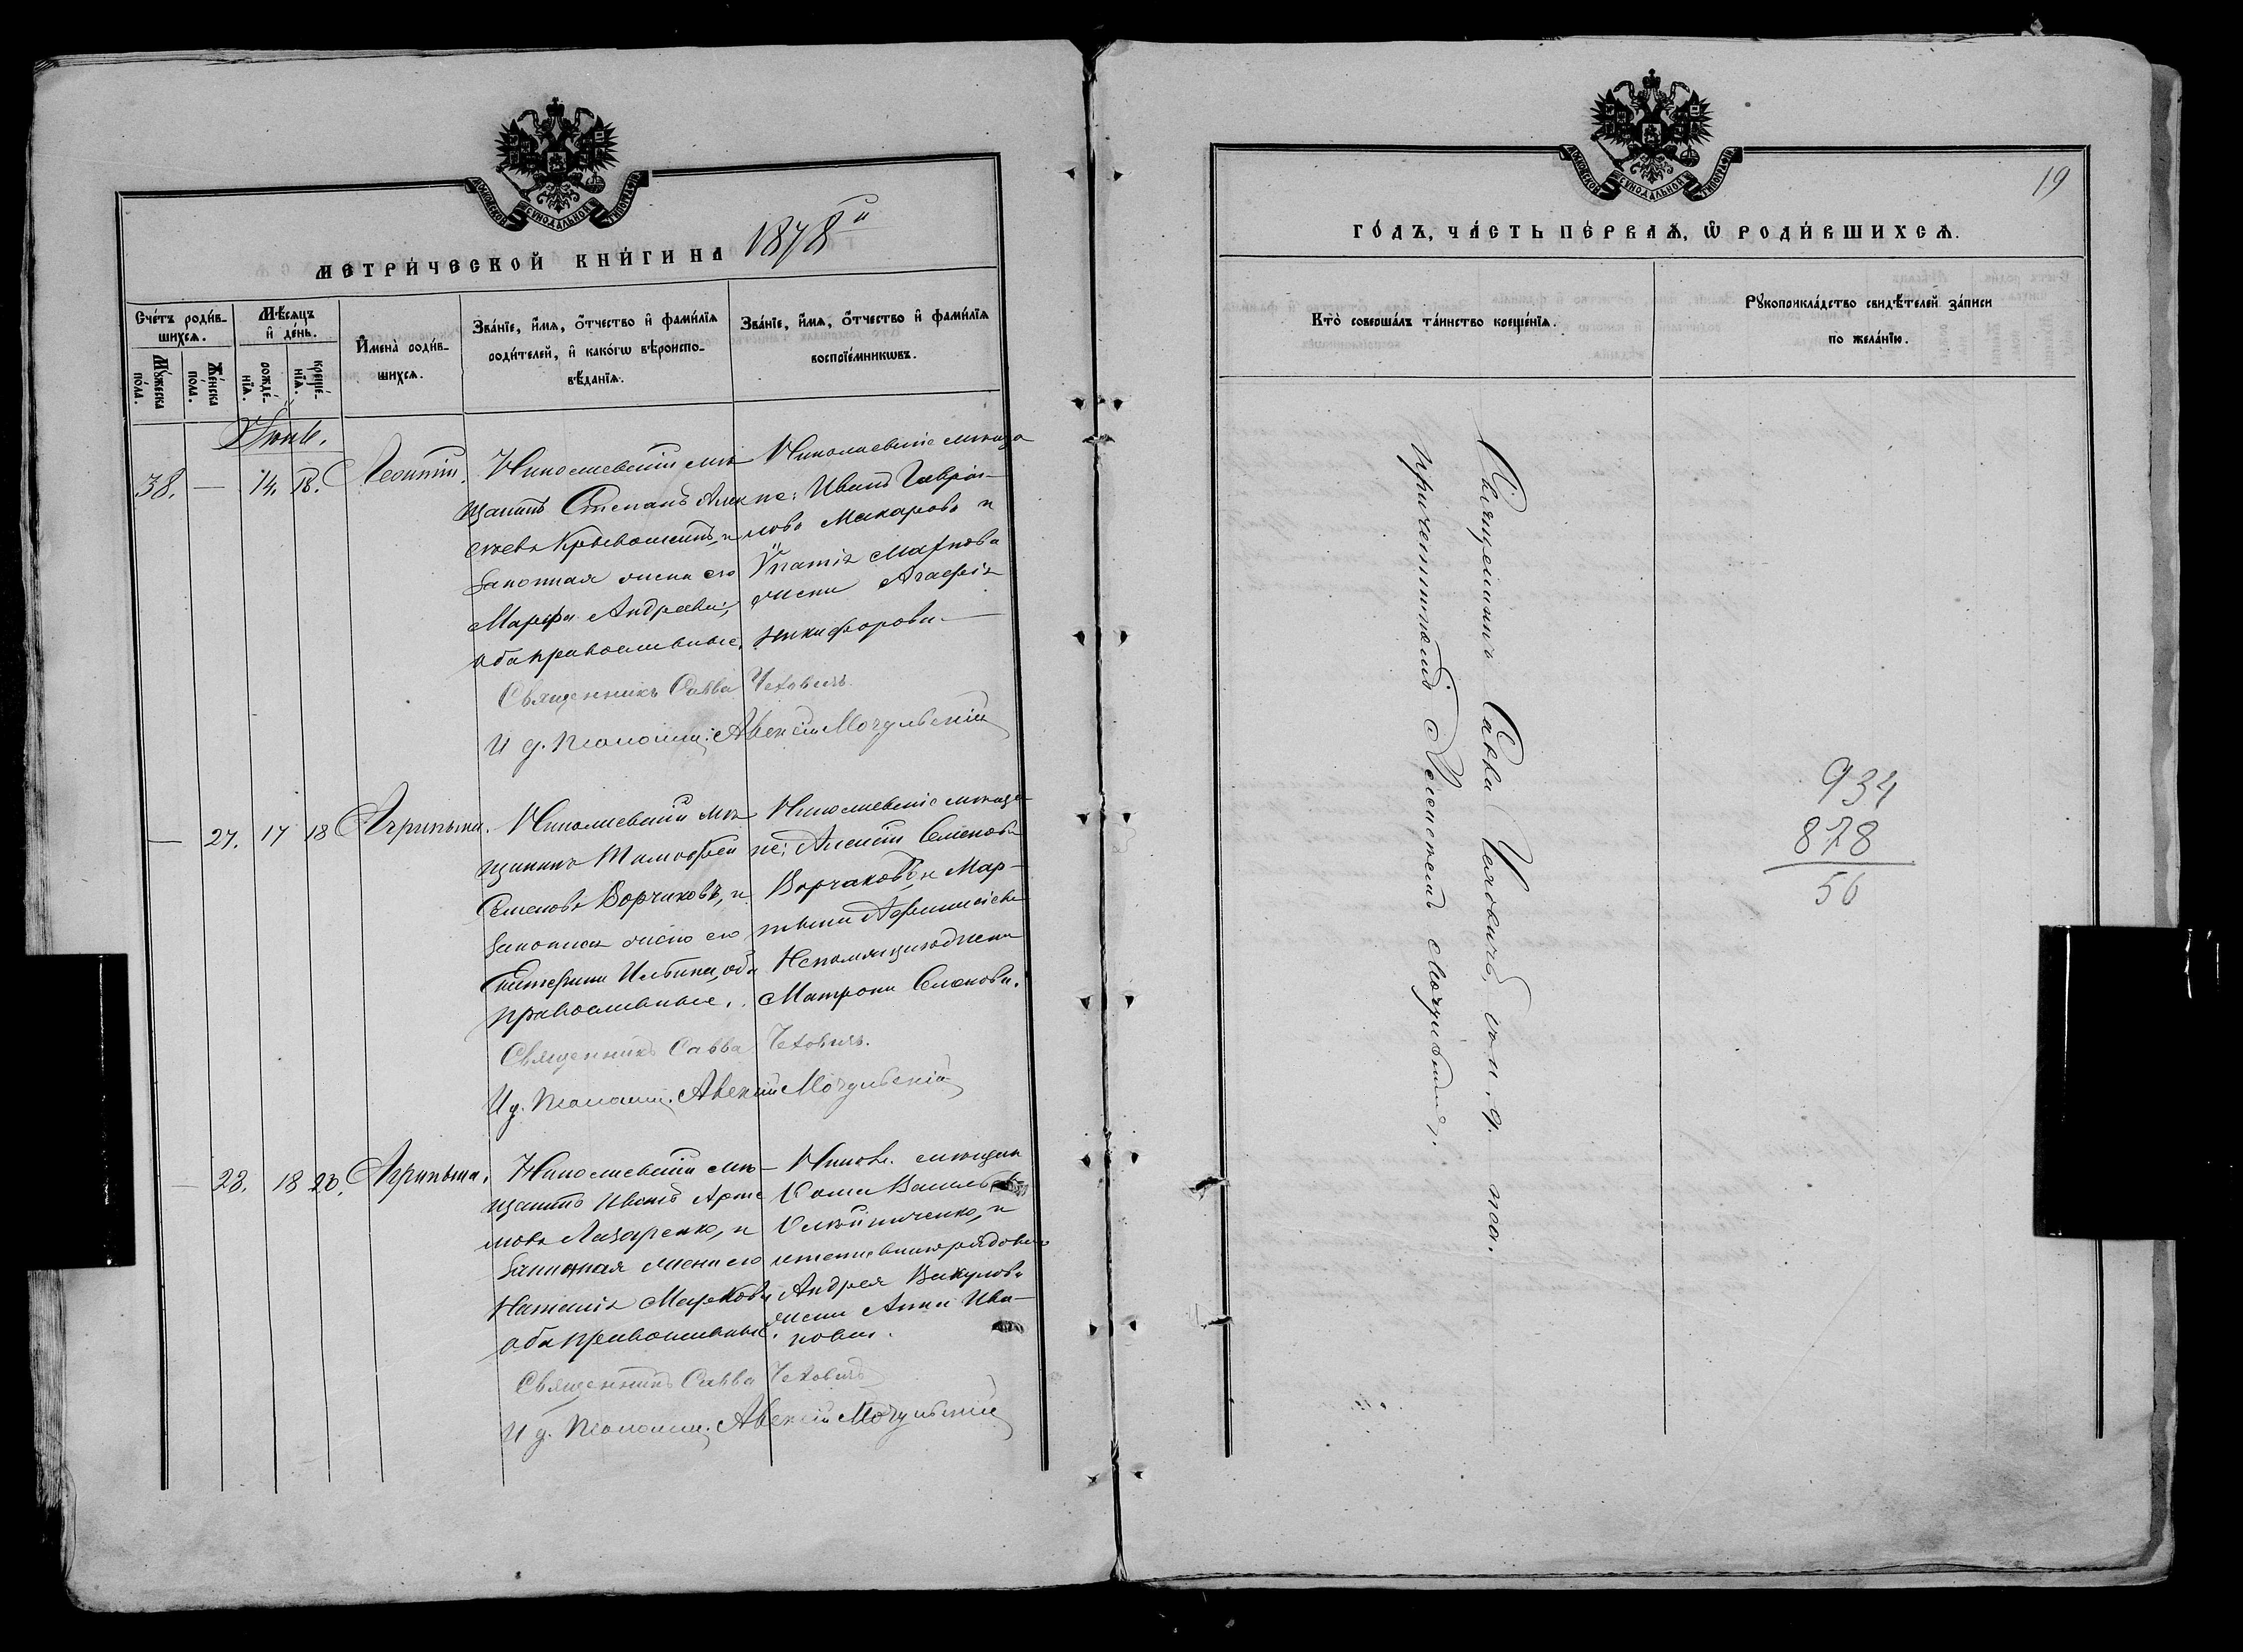 МОСКОВСКОЙ СѴНОДАЛЬНОЙ ТИПОГРАФІИ
МЕТРИ́ЧЕСКОЙ КНИ́ГИ НА 1878й
Сче́тъ роди́в-
шихсѧ.
Мѣ́сѧцъ
и҆ де́нь.
Мꙋ́жеска
по́ла.
Же́нска
по́ла.
рожде́-
нїѧ.
креще́-
нїѧ.
И҆мена̀ роди́в-
шихсѧ.
Зва́нїе, и҆́мѧ, ѻ҆́тчество и҆ фами́лїѧ
роди́телей, и҆ како́гѡ вѣроиспо-
вѣ́данїѧ.
Зва́нїе, и҆́мѧ, ѻ҆́тчество и҆ фами́лїѧ
воспрїе́мникѡвъ.
Іюнь.
38. — 14. 18. Леонтій.
Николаевскій мѣ-
щанинъ Степанъ Алек
сѣевъ Кривошеинъ, и
законная жена его
Марфа Андреева,
оба православные.
Николаевскіе мѣща
не: Иванъ Гаврі-
ловъ Макаровъ и
Игнатія Маркова
жена Агафія
Никифорова. —
Священникъ Савва Чеховичъ.
И д. псаломщ: Авксій Мочульскій
— 27. 17 18 Агрипина.
Николаевскій мѣ-
щанинъ Тимофей
Семеновъ Ворчаковъ, и
законная жена его
Екатерина Ильина, оба
православные.
Николаевскіе мѣща-
не; Алексій Семеновъ
Ворчаковъ, и Мар-
Матрона Семенова.
Священникъ Савва Чеховичъ.
И д. псаломщ. Авксій Мочульскій
— 28. 18 20. Агрипина.
Николаевскій мѣ-
щанинъ Иванъ Арте
мовъ Лазаренко, и
законная жена его
Наталія Маркова
оба православные.
Никол. мѣщан
Василь
и
рядоваго
Андрея Вакулова
жена Анна Ива-
нова.
Священникъ Савва Чеховичъ
И д. псаломщ. Авксій Мочульскій
МОСКОВСКОЙ СѴНОДАЛЬНОЙ ТИПОГРАФІИ
19
ГО́ДЪ, ЧА́СТЬ ПЕ́РВАѦ, Ѡ҆ РОДИ́ВШИХСѦ.
Кто̀ соверша́лъ та́инство креще́нїѧ.
Рꙋкоприкла́дство свидѣ́телей за́писи
по жела́нїю.
Священникъ Савва Чеховичъ, съ и. д. пса.
причетникомъ Алексіемъ Мочульским.
934
878
56